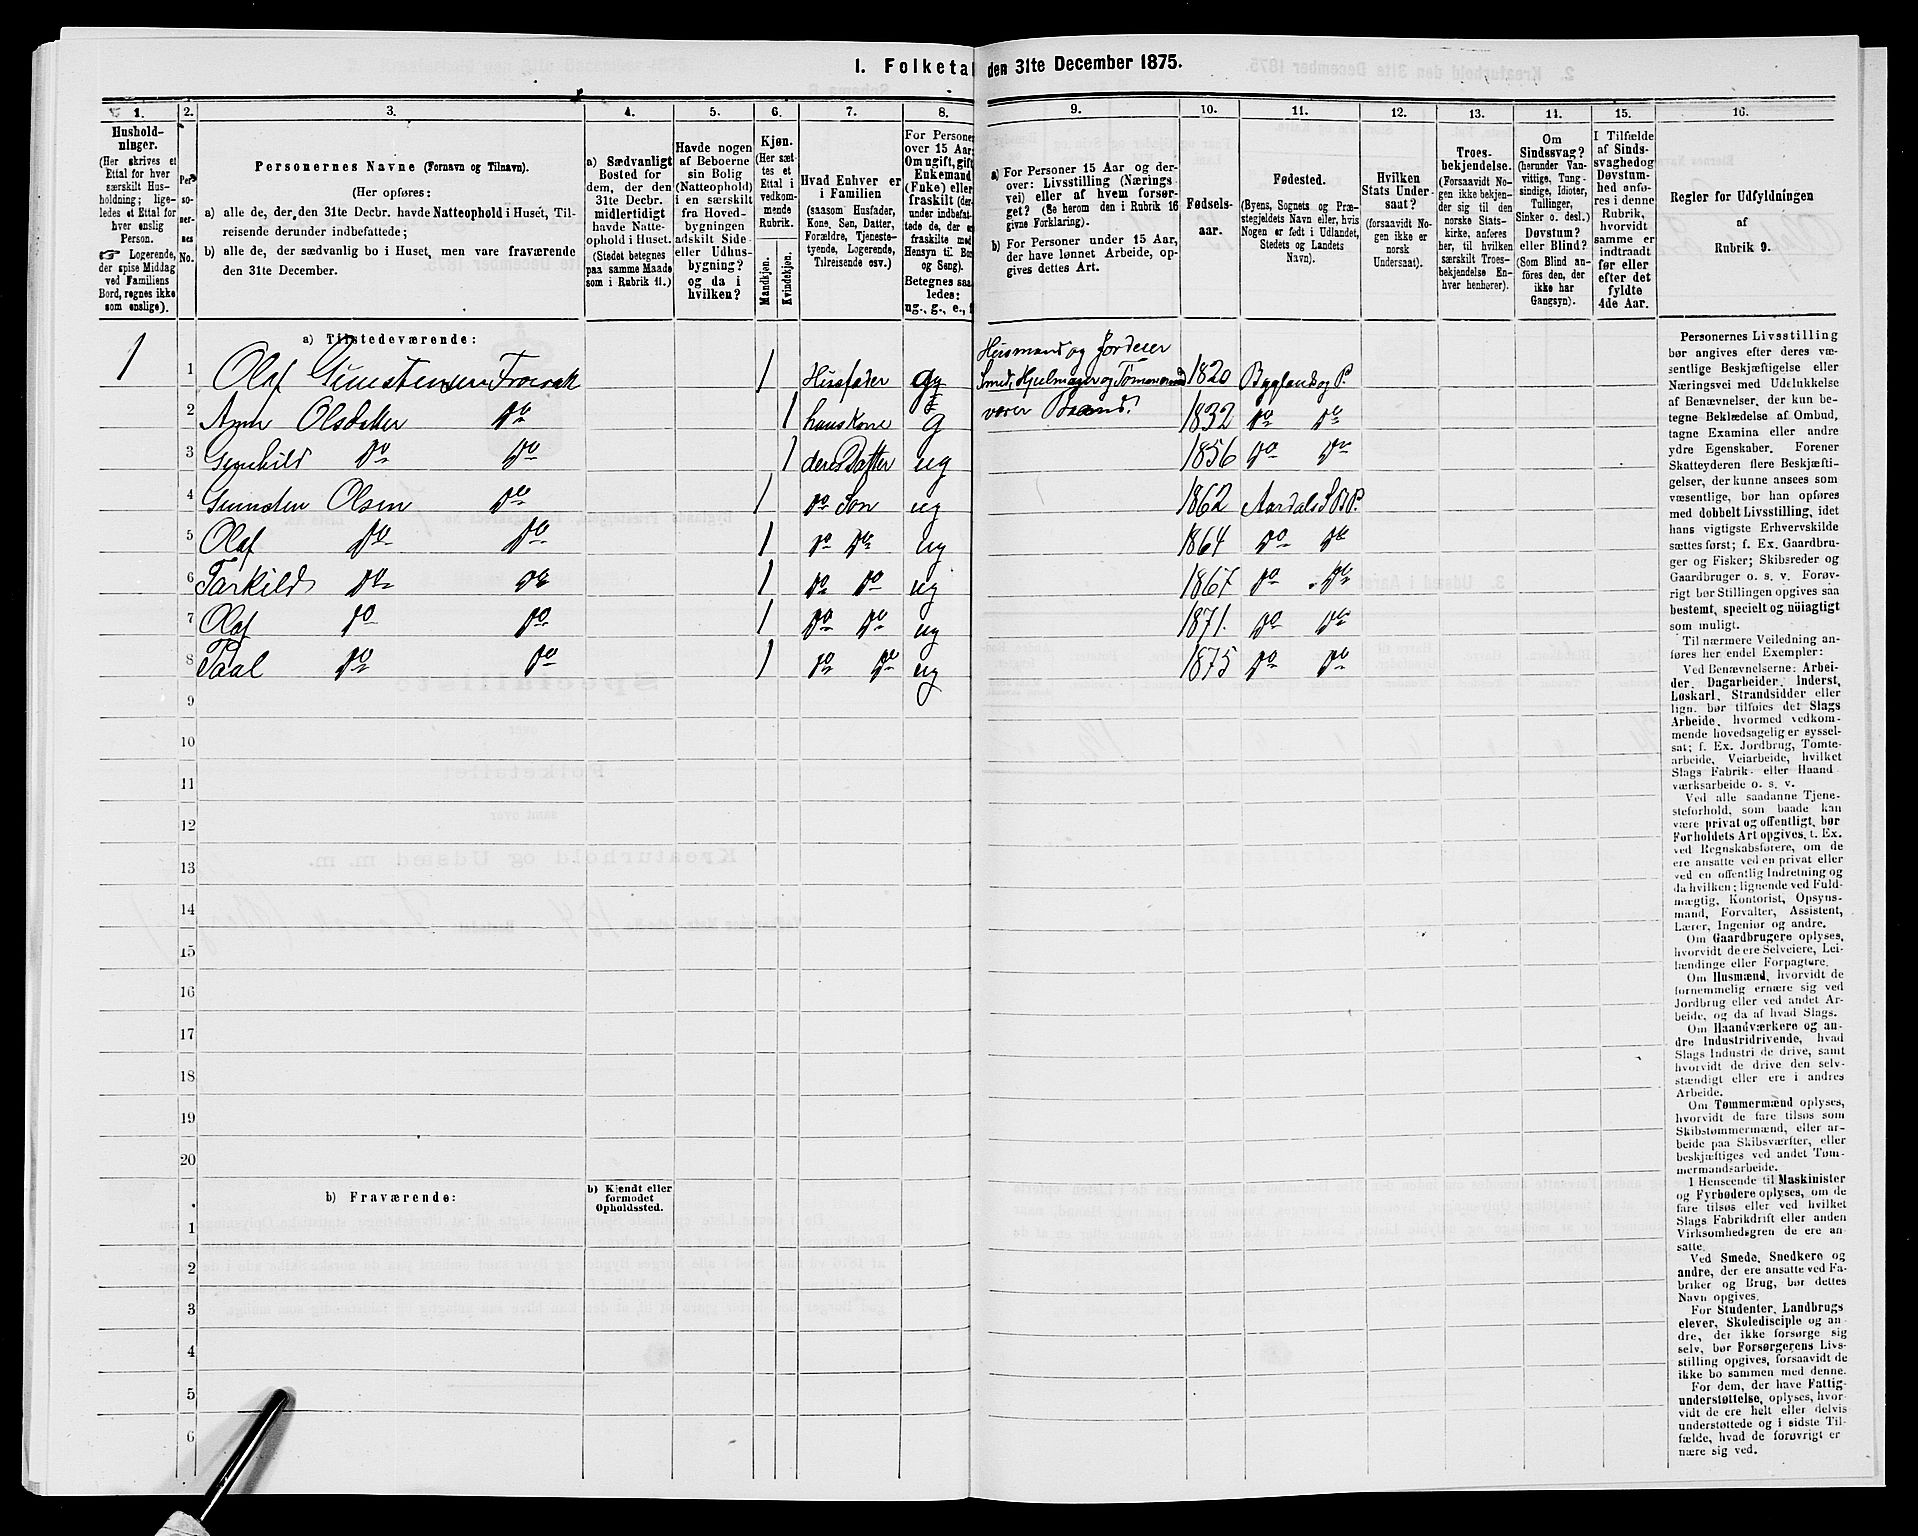 1. Folketal den 31te December 1875.
1. 2. 3. 4. 5. 6. 7. 8. 9. 10. 11. 12. 13. 14. 15. 16.
Hushold-
ninger.
(Her skrives et
Ettal for hver
særskilt Hus-
holdning; lige-
ledes et Ettal for
hver enslig
Person.
☞ Logerende,
der spise Middag
ved Familiens
Bord, regnes ikke
som enslige).
Per-
so-
ner-
nes
No.
Personernes Navne (Fornavn og Tilnavn).
(Her opføres:
a) alle de, der den 31te Decbr. havde Natteophold i Huset, Til-
reisende derunder indbefattede;
b) alle de, der sædvanlig bo i Huset, men vare fraværende
den 31te December.
a) Sædvanligt
Bosted for
dem, der den
31te Decbr.
midlertidigt
havde Natte-
ophold i Huset.
(Stedet betegnes
paa samme Maade
som i Rubrik 11.)
Havde nogen
af Beboerne
sin Bolig
(Natteophold)
i en særskilt
fra Hoved-
bygningen
adskilt Side-
eller Udhus-
bygning?
og da i
hvilken?
Kjøn.
(Her sæt-
tes et
Ettal i
vedkom-
mende
Rubrik.
Mandkjøn.
Kvindekjøn.
Hvad Enhver er
i Familien
(saasom Husfader,
Kone, Søn, Datter,
Forældre, Tjeneste-
tyende, Logerende,
Tilreisende osv.)
For Personer
over 15 Aar:
Om ugift, gift,
Enkemand
(Enke) eller
fraskilt (der-
under indbefat-
tede de, der ere
fraskilte med
Hensyn til Bord
og Seng).
Betegnes saa-
ledes:
ug., g., e., f.
a) For Personer 15 Aar og der-
over: Livsstilling (Nærings-
vei) eller af hvem forsør-
get? (Se herom den i Rubrik 16
givne Forklaring).
b) For Personer under 15 Aar,
der have lønnet Arbeide, op-
gives dettes Art.
Fødsels-
aar.
Fødested.
(Byens, Sognets og Præ-
stegjeldets Navn eller, hvis
Nogen er født i Udlandet,
Stedets og Landets
Navn).
Hvilken
Stats Under-
saat?
(forsaavidt No-
gen ikke er
norsk
Undersaat).
Troes-
bekjendelse.
(Forsaavidt No-
gen ikke bekjen-
der sig til den
norske Stats-
kirke, anføres
her, til hvilken
særskilt Troes-
bekjendelse En-
hver henhører).
Om
Sindssvag?
(herunder Van-
vittige, Tung-
sindige, Idioter,
Tullinger,
Sinker o. desl.)
Døvstum?
eller Blind?
(Som Blind an-
føres den, der
ikke har
Gangsyn).
I Tilfælde
af Sinds-
svaghed og
Døvstum-
hed anfø-
res i denne
Rubrik,
hvorvidt
samme er
indtraadt
før eller
efter det
fyldte
4de Aar.
Regler for Udfyldningen
af
Rubrik 9.
a) Tilstedeværende:
1 1 Olaf Gunstensen Froirak 1 Husfader g Husmand og Jordeier Smed, Hjulmager og Tømmermand 1820 Bygland og P.
2 Ann Olsdatter Do 1 hans Kone g 1832 Do Do
3 Gunhild Do Do 1 deres Datter ug 1856 Do Do
4 Gunsten Olsen Do 1 Do Søn ug 1862 Aardals S B P.
5 Olaf Do Do 1 Do Do ug 1864 Do Do
6 Tarkild Do Do 1 Do Do ug 1867 Do Do
7 Olaf Do Do 1 Do Do ug 1871. Do Do
8 Paal Do Do 1 Do Do ug 1875 Do Do
9
10
11
12
13
14
15
16
17
18
19
20
b) Fraværende:
b) Kjendt eller
formodet
Opholdssted.
1
2
3
4
5
6
Personernes Livsstilling
bør angives efter deres væ-
sentlige Beskjæftigelse eller
Næringsvei med Udelukkelse
af Benævnelser, der kun be-
tegne Beklædelse af Ombud,
tagne Examina eller andre
ydre Egenskaber. Forener
Skatteyderen flere Beskjæfti-
gelser, der kunne ansees som
væsentlige, bør han opføres
med dobbelt Livsstilling, idet
hans vigtigste Erhvervskilde
sættes først; f. Ex. Gaardbru-
ger og Fisker; Skibsreder og
Gaardbruger o. s. v. Forøv-
rigt bør Stillingen opgives saa
bestemt, specielt og nøiagtigt
som muligt.
Til nærmere Veiledning an-
føres her endel Exempler:
Ved Benævnelserne: Arbei-
der, Dagarbeider, Inderst,
Løskarl, Strandsidder eller
lign. bør tilføies det Slags
Arbeide, hvormed vedkom-
mende hovedsagelig er syssel-
sat; f. Ex. Jordbrug, Tomte-
arbeide, Veiarbeide, hvilket
Slags Fabrik- eller Haand-
værksarbeide o. s. v.
Ved alle saadanne Tjene-
steforhold, som baade kan
være privat og offentligt, bør
Forholdets Art opgives, t. Ex.
ved Regnskabsførere, om de
ere ansatte ved en privat eller
ved en offentlig Indretning og
da hvilken; lignende ved Fuld-
mægtig, Kontorist, Opsyns-
mand, Forvalter, Assistent,
Lærer, Ingeniør og andre.
Om Gaardbrugere oplyses,
hvorvidt de ere Selveiere, Lei-
lændinge eller Forpagtere.
Om Husmænd, hvorvidt de
fornemmelig ernære sig ved
Jordbrug eller ved andet Ar-
beide, og da af hvad Slags.
Om Haandværkere og an-
dre Industridrivende, hvad
Slags Industri de drive, samt
hvorvidt de drive den selv-
stændigt eller ere i andres
Arbeide.
Om Tømmermænd oplyses,
hvorvidt de fare tilsøs som
Skibstømmermænd, eller ar-
beide paa Skibsværfter, eller
beskjæftiges ved andet Tøm-
mermandsarbeide.
I Henseende til Maskinister
og Fyrbødere oplyses, om de
fare tilsøs eller ved hvilket
Slags Fabrikdrift eller anden
Virksomhedsgren de ere an-
satte.
Ved Smede, Snedkere og
andre, der ere ansatte ved Fa-
briker og Brug, bør dettes
Navn opgives.
For Studenter, Landbrugs-
elever, Skoledisciple og an-
dre, der ikke forsørge sig
selv, bør Forsørgerens Livs-
stilling opgives, forsaavidt de
ikke bo sammen med denne.
For dem, der have Fattig-
understøttelse, oplyses, hvor-
vidt de ere helt eller delvis
understøttede og i sidste Til-
fælde, hvad de forøvrigt er-
nære sig ved.